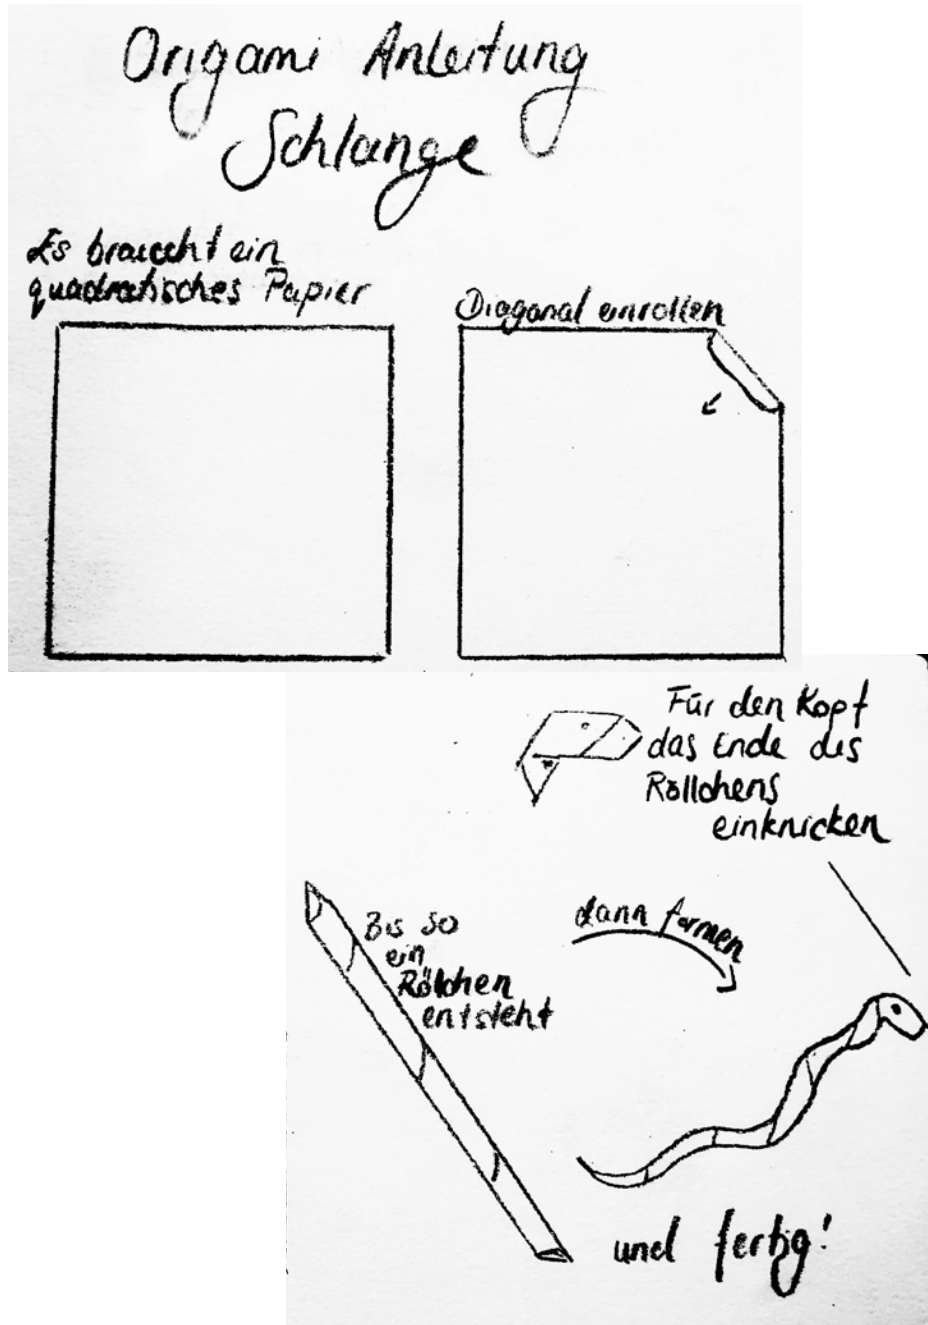 Origami Anleitung
Schlange
Es braucht ein
quadratisches Papier
Diagonal einrollen
Für den Kopf
das Ende des
Röllchens
einknicken
Bis so
ein
Röllchen
entsteht
dann formen
und fertig!